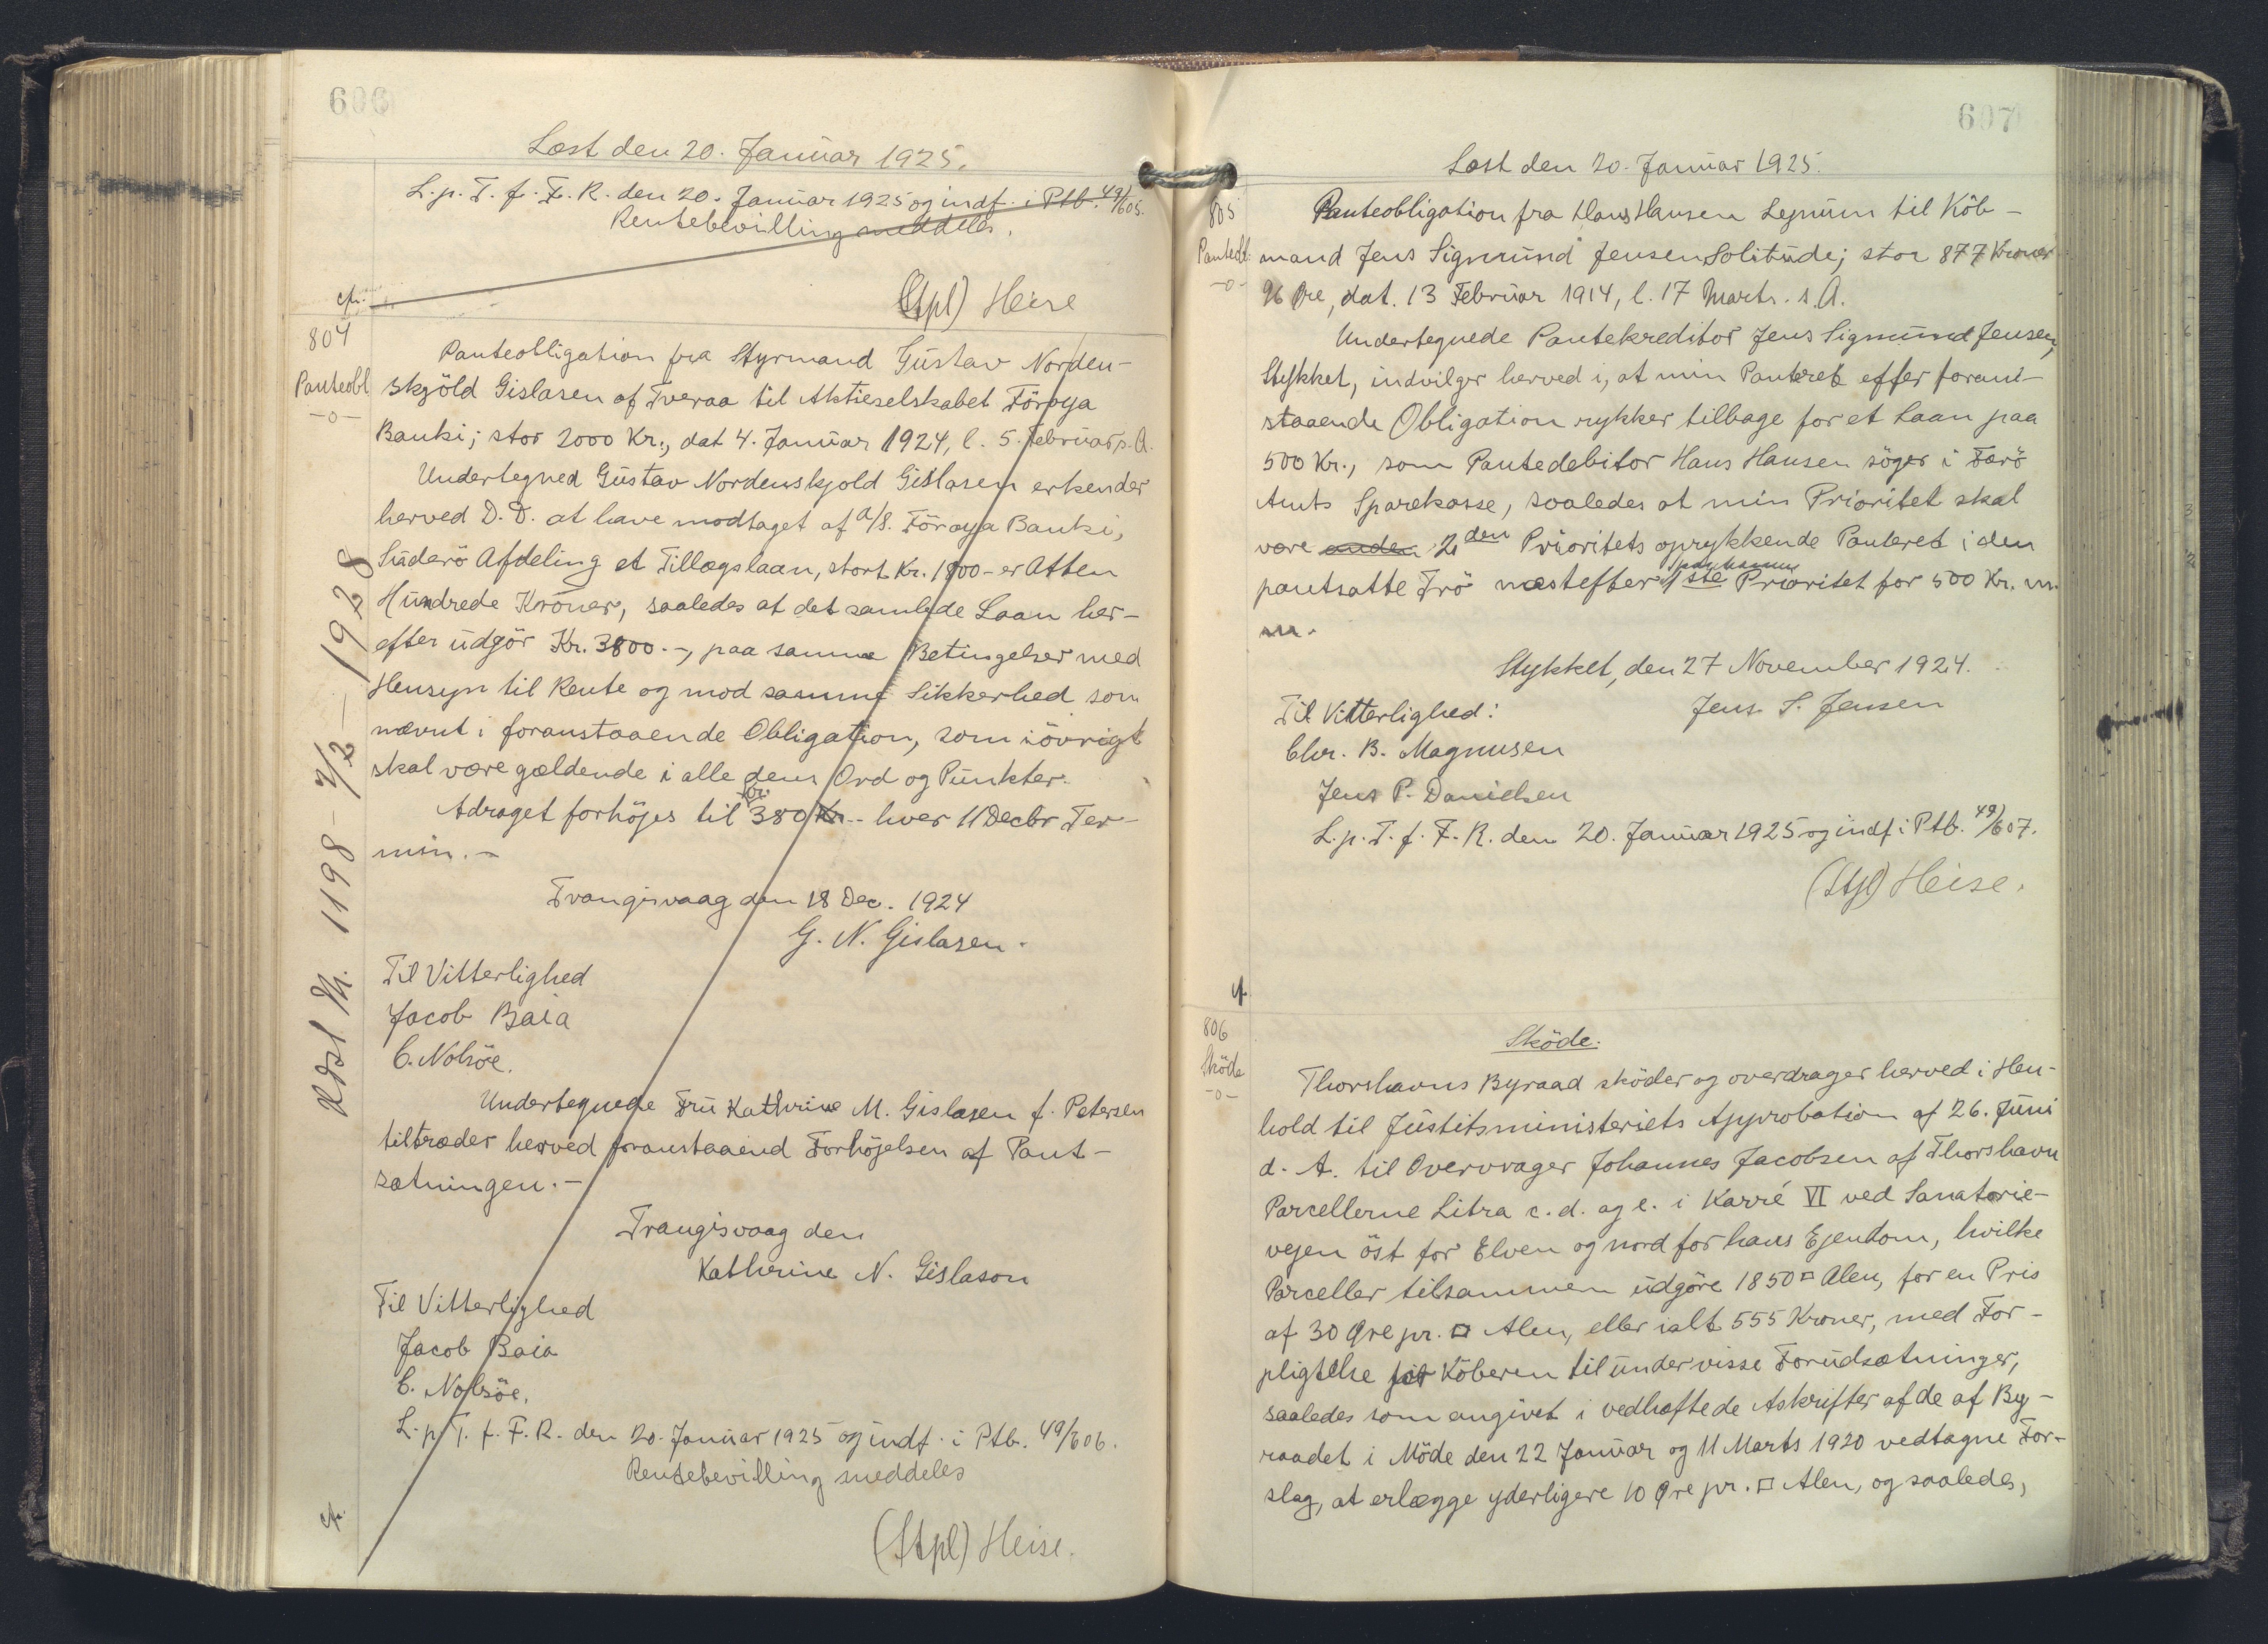 606
Læst den 20. Januar 1925.
L. p. T. f. F. R. den 20. Januar 1925 og indf. i Ptb. 49/605.
Rentebevilling meddeles.
cfr.
(Stpl) Heise
804
Panteobl
-o-
Panteobligation fra Styrmand Gustav Norden-
skjöld Gislasen af Tveraa til Aktieselskabet Föroya
Banki; stor 2000 Kr., dat 4. Januar 1924, l. 5. Februar s. A.
Undertegned Gustav Nordenskjold Gislasen erkender
herved D. D. at have modtaget af A/S. Föroya Banki,
Suderö Afdeling et Tillægslaan, stort Kr. 1800 - er Atten
Hundrede Kroner, saaledes at det samlede Laan her-
efter udgör Kr. 3800.-, paa samme Betingelser med
Hensyn til Rente og mod samme Sikkerhed som
nævnt i foranstaaende Obligation, som iövrigt
skal være gældende i alle dens Ord og Punkter.
Adraget forhöjes til Kr. 380 Kr.- hver 11 Decbr Ter-
min.-
Trangisvaag den 18 Dec. 1924
G. N. Gislasen.
Til Vitterlighed
Jacob Baia
C. Nolsöe.
Undertegnede Fru Kathrine M. Gislasen f. Petersen
tiltræder herved foranstaaend Forhöjelsen af Pant-
sætningen.-
Trangisvaag den
Kathrine N. Gislason
Til Vitterlighed
Jacob Baia
C. Nolsöe.
L. p. T. f. F. R. den 20. Januar 1925 og indf. i Ptb. 49/606.
Rentebevilling meddeles
cfr.
(Stpl) Heise.
1198 - 7/2 - 1928
607
Læst den 20. Januar 1925.
805
Panteobl.
-o-
Panteobligation fra Hans Hansen Legnum til Köb-
mand Jens Sigmund Jensen Solitude; stor 877 Kroner
96 Øre, dat. 13 Februar 1914, l. 17 Marts. s. A.
Undertegnede Pantekreditor Jens Sigmund Jensen,
Stykket, indvilger herved i, at min Panteret efter foran-
staaende Obligation rykker tilbage for et Laan paa
500 Kr., som Pantedebitor Hans Hansen söger i Færö
Amts Sparekasse, saaledes at min Prioritet skal
være anden 2den Prioritets oprykkende Panteret i den
pantsatte Trö næstefter 1ste Prioritet for 500 Kr. m.
m.
Stykket, den 27 November 1924.
Til Vitterlighed: Jens S. Jensen
Chr. B. Magnusen
Jens P. Danielsen
L. p. T. f. F. R. den 20. Januar 1925 og indf. i Ptb. 49/607.
(Stpl) Heise.
cf.
806
Sköde
-o-
Sköde.
Thorshavns Byraad sköder og overdrager herved i Hen-
hold til Justitsministeriets Approbation af 26. Juni
d. A. til Overvrager Johannes Jacobsen af Thorshavn
Parcellerne Litra c. d. og e. i Karré VI ved Sanatorie-
vejen öst for Elven og nord for hans Ejendom, hvilke
Parceller tilsammen udgöre 1850 □ Alen, for en Pris
af 30 Øre pr. □ Alen, eller ialt 555 Kroner, med For-
pligtelse for Köberen til under visse Forudsætninger,
saaledes som angivet i vedhæftede Askrifter af de af By-
raadet i Möde den 22 Januar og 11 Marts 1920 vedtagne For-
slag, at erlægge yderligere 10 Øre pr. □ Alen, og saaledes,